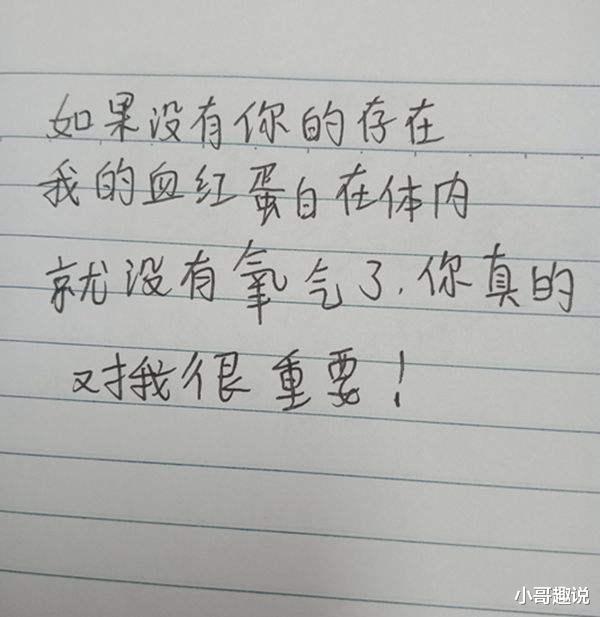 如果没有你的存在
我的血红蛋白在体内
就没有氧气了.你真的
对我很重要!
小哥趣说